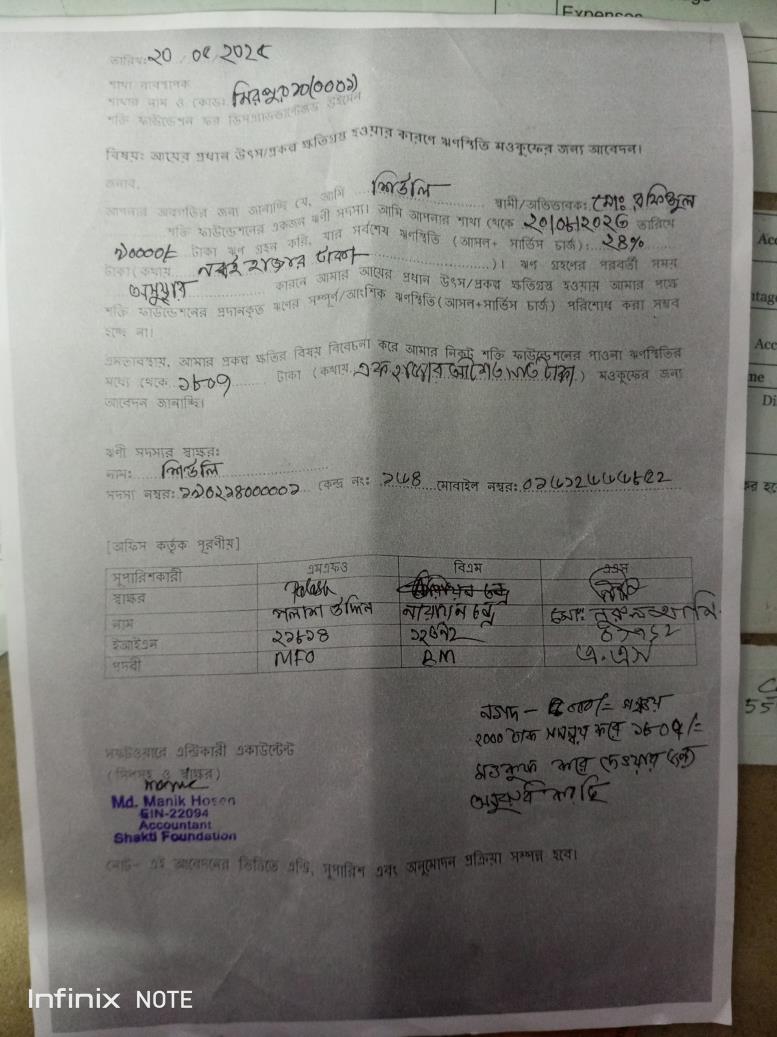 Expenses
তারিখ: ২০/০৫/২০২৫
শাখা ব্যবস্থাপক
শাখার নাম ও কোড: মিরপুর১০(০০০১)
শক্তি ফাউন্ডেশন ফর ডিসএ্যাডভান্টেজড উইমেন
বিষয়: আয়ের প্রধান উৎস/প্রকল্প ক্ষতিগ্রস্থ হওয়ার কারণে ঋণস্থিতি মওকুফের জন্য আবেদন।
জনাব,
আপনার অবগতির জন্য জানাচ্ছি যে, আমি শিউলি স্বামী/অভিভাবক: মোঃ রফিজুল
শক্তি ফাউন্ডেশনের একজন ঋণী সদস্য। আমি আপনার শাখা থেকে তারিখে
৯০০০০/= টাকা ঋণ গ্রহন করি, যার সর্বশেষ ঋণস্থিতি (আসল+ সার্ভিস চার্জ): ২৪%
টাকা (কথায় নব্বই হাজার টাকা )। ঋণ গ্রহনের পরবর্তী সময়
অসুস্থ্য কারনে আমার আয়ের প্রধান উৎস/প্রকল্প ক্ষতিগ্রস্থ হওয়ায় আমার পক্ষে
শক্তি ফাউন্ডেশনের প্রদানকৃত ঋণের সম্পূর্ণ/আংশিক ঋণস্থিতি(আসল+সার্ভিস চার্জ) পরিশোধ করা সম্ভব
হচ্ছে না।
এমতাবস্থায়, আমার প্রকল্প ক্ষতির বিষয় বিবেচনা করে আমার নিকট শক্তি ফাউন্ডেশনের পাওনা ঋণস্থিতির
মধ্যে থেকে ১৮০৭ টাকা (কথায় এক হাজার আটশত সাত টাকা ) মওকুফের জন্য
আবেদন জানাচ্ছি।
ঋণী সদস্যর স্বাক্ষর:
নাম: শিউলি
সদস্য নম্বর: কেন্দ্র নং: মোবাইল নম্বর:
[অফিস কর্তৃক পূরণীয়]
সুপারিশকারী এমএফও বিএম এএস
স্বাক্ষর Palash
নাম পলাশ উদ্দিন নারায়ন চন্দ্র মোঃ
ইআইএন ২১৮১৪
পদবী MFO BM এ.এস
নগদ –
২০০০ টাকা সমন্বয় করে ১৮০৭/=
মওকুফ করে দেওয়ার জন্য
অনুরোধ করছি
সফটওয়ারে এন্ট্রিকারী একাউন্টেন্ট
(সিলসহ ও স্বাক্ষর)
Md. Manik Hosen
EIN-22094
Accountant
Shakti Foundation
নোট- এই আবেদনের ভিত্তিতে এন্ট্রি, সুপারিশ এবং অনুমোদন প্রক্রিয়া সম্পন্ন হবে।
Infinix NOTE